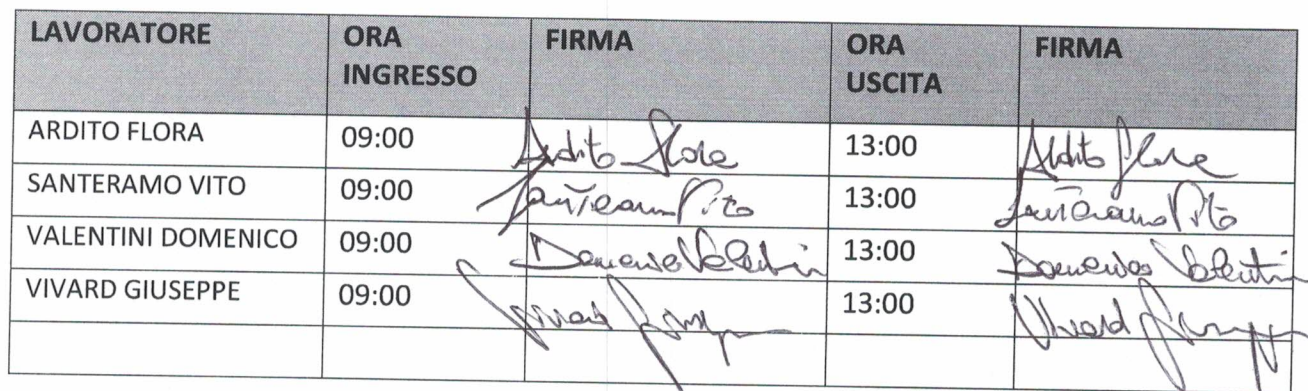 LAVORATORE ORA INGRESSO FIRMA ORA USCITA FIRMA
ARDITO FLORA 09:00 Ardito Flora 13:00 Ardito Flora
SANTERAMO VITO 09:00 Santeramo Vito 13:00 Santeramo Vito
VALENTINI DOMENICO 09:00 Domenico Valentini 13:00 Domenico Valentini
VIVARD GIUSEPPE 09:00 Vivard Giuseppe 13:00 Vivard Giuseppe